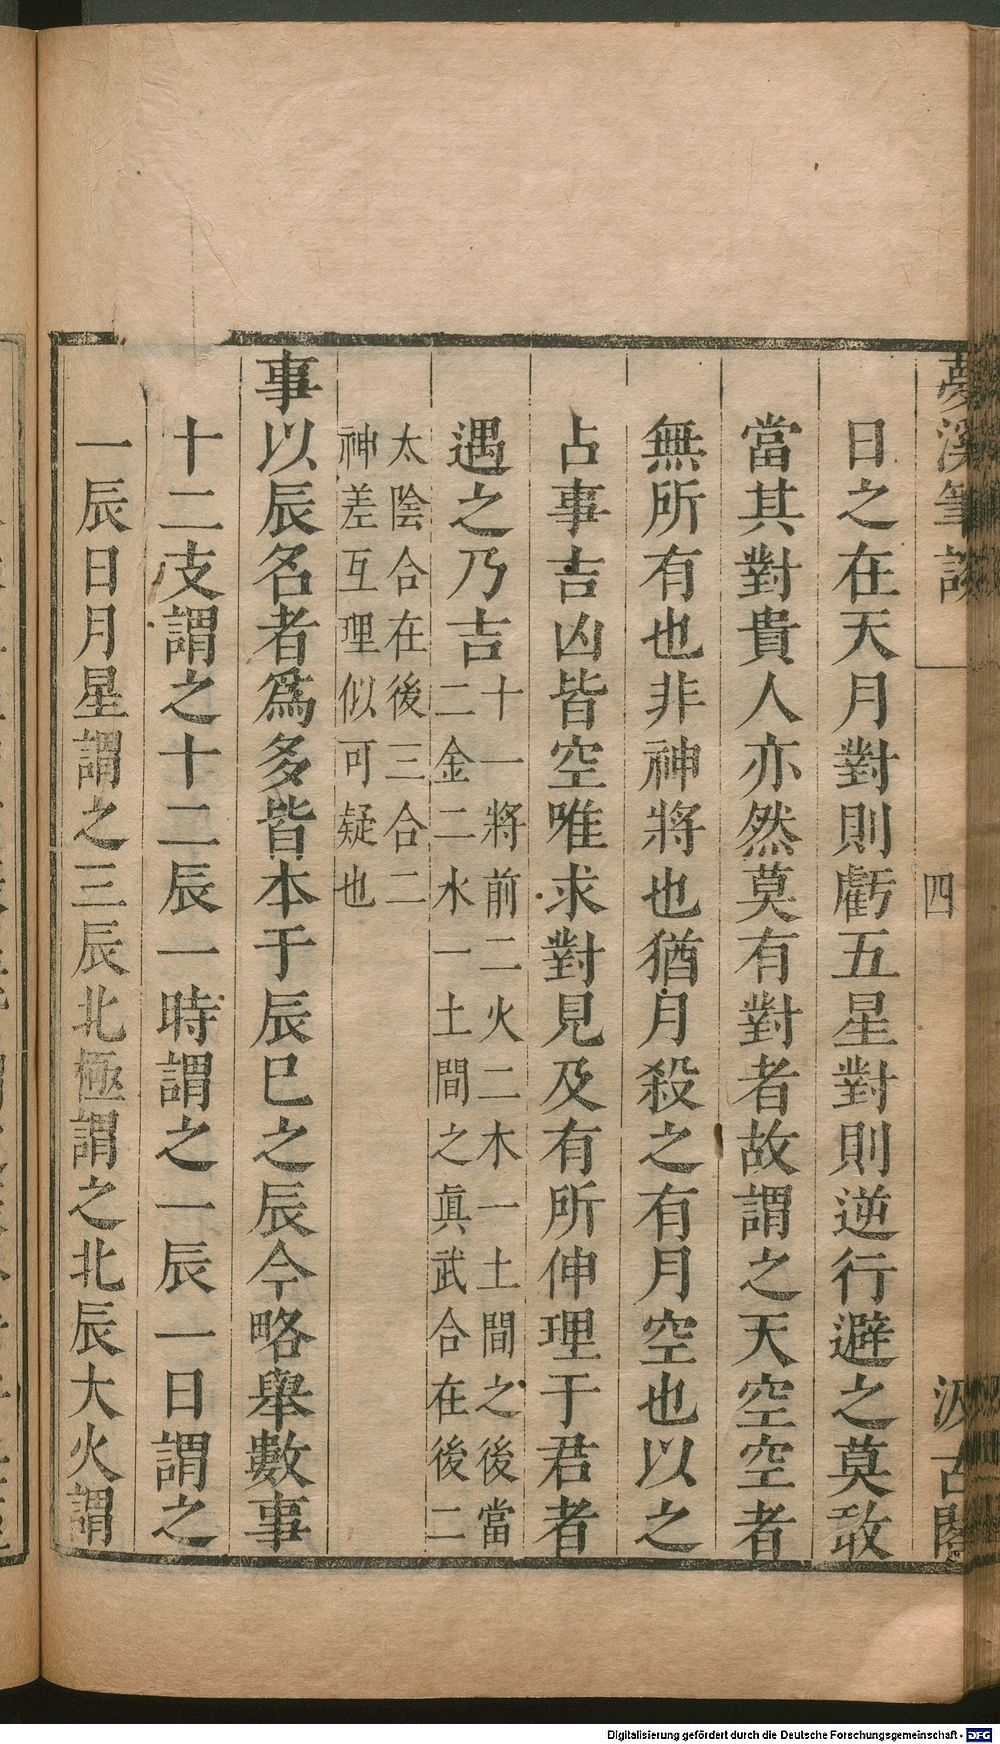 夢溪筆談 四 汲古閣
日之在天月對則虧五星對則逆行避之莫敢
當其對貴人亦然莫有對者故謂之天空空者
無所有也非神將也猶月殺之有月空也以之
占事吉凶皆空唯求對見及有所伸理于君者
遇之乃吉十一將前二火二木一土間之後當
二金二水一土間之真武合在後二
太陰合在後三合二
神差互理似可疑也
事以辰名者爲多皆本于辰巳之辰今略舉數事
十二支謂之十二辰一時謂之一辰一日謂之
一辰日月星謂之三辰北極謂之北辰大火謂
Digitalisierung gefördert durch die Deutsche Forschungsgemeinschaft - DFG